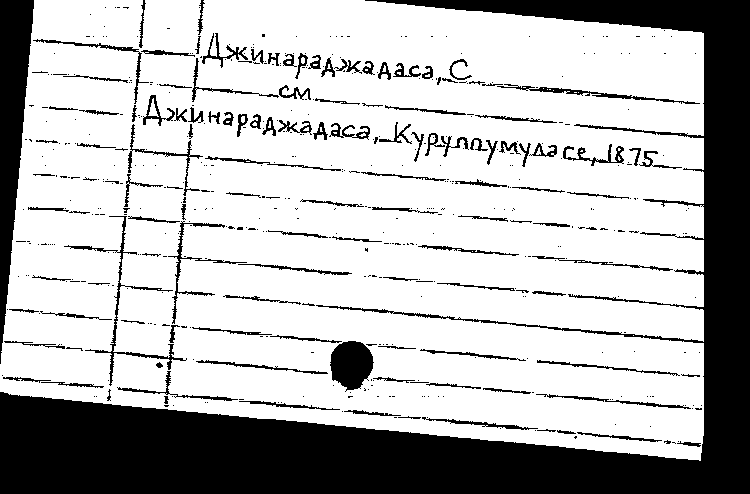 Джинараджадаса, С
см
Джинараджадаса, Куруппумуласе, 1875